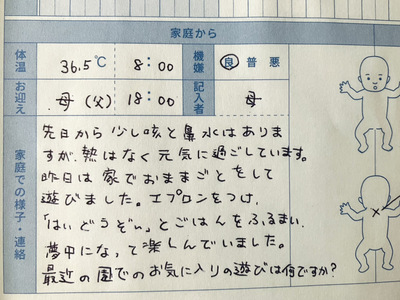 家庭から
体温 36.5℃ 8:00 機嫌 良 普 悪
お迎え 母 (父) 18:00 記入者 母
家庭での様子・連絡
先日から少し咳と鼻水はありま
すが、熱はなく元気に過ごしています。
昨日は家でおままごとをして
遊びました。エプロンをつけ、
「はいどうぞぃ」とごはんをふるまい、
夢中になって楽しんでいました。
最近の園でのお気に入りの遊びは何ですか?